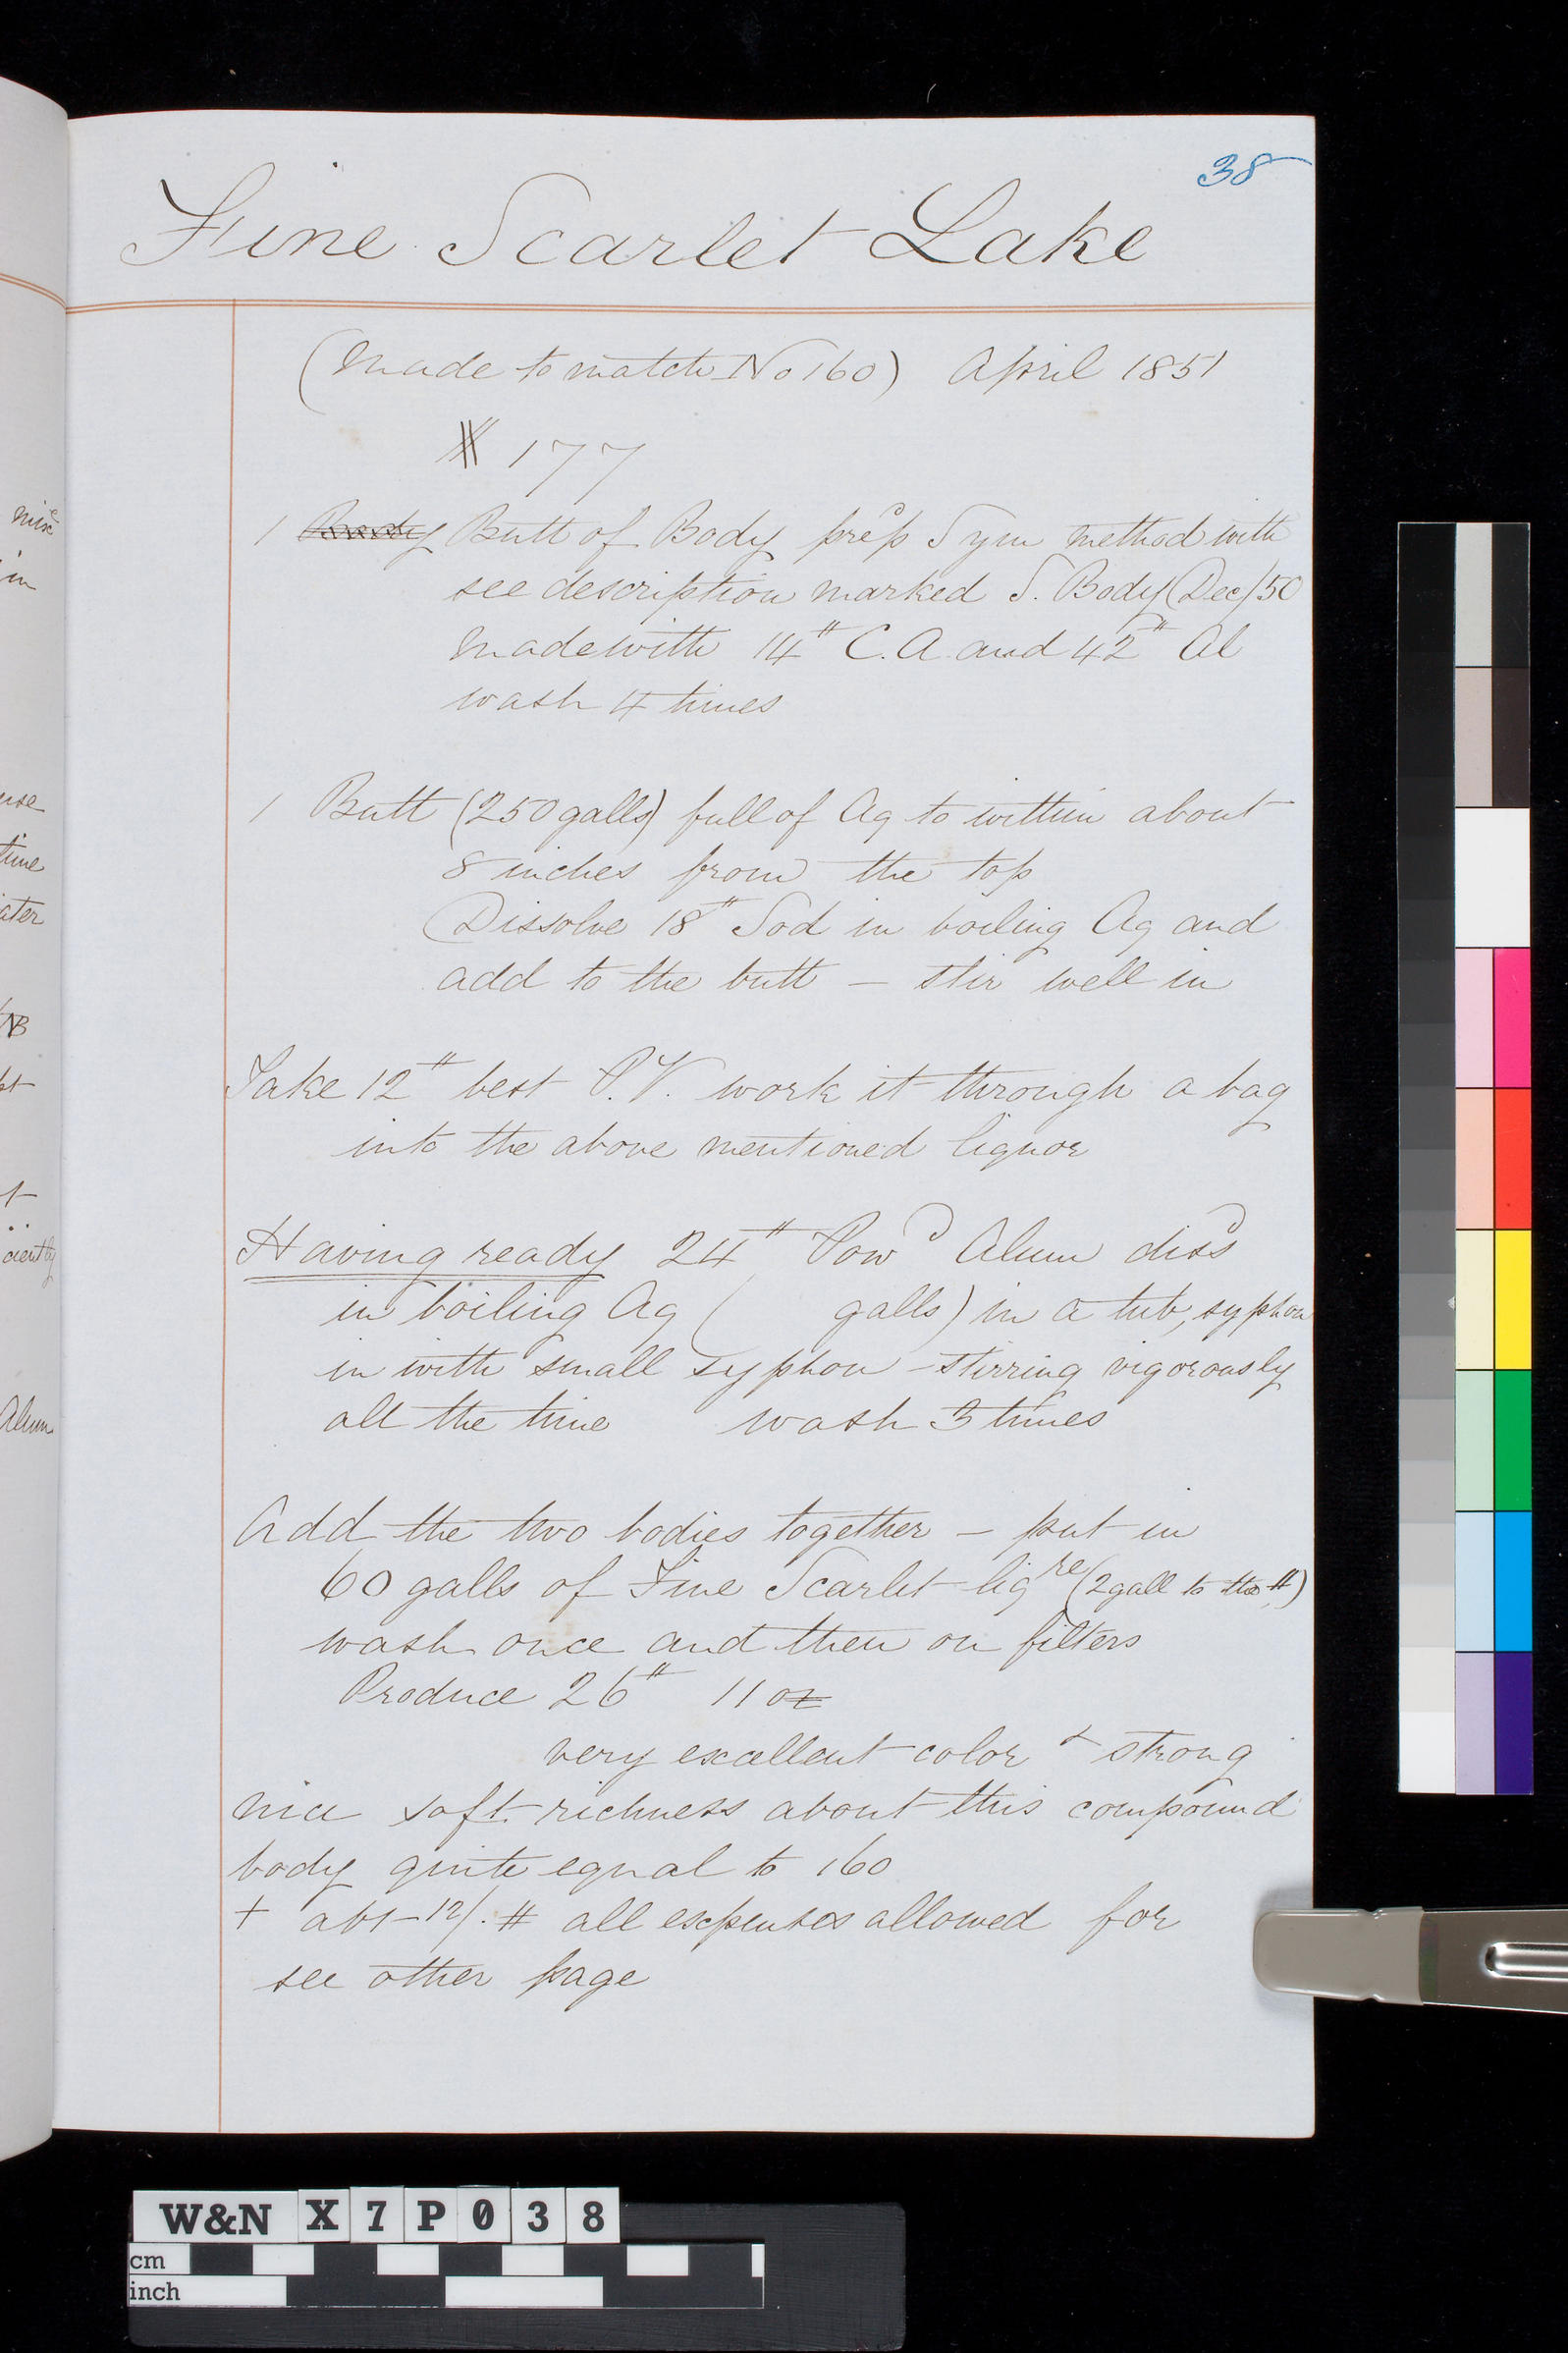 38
Fine Scarlet Lake
(Made to match No 160) April 1851
177
1 Body Butt of Body prepd Sym method with
see description marked S. Body (Dec/50
Made with 14# C.A and 42# Al
wash 4 times
1 Butt (250 galls) full of Aq to within about
8 inches from the top
Dissolve 18# Sod in boiling Aq and
add to the butt – stir well in
Take 12# best P.V. work it through a bag
into the above mentioned liquor
Having ready 24# Powd Alum dissd
in boiling Aq ( galls) in a tub, syphon
in with small syphon stirring vigorously
all the time wash 3 times
Add the two bodies together – put in
60 galls of Fine Scarlet liqre (2 gall to the #)
wash once and then on filters
Produce 26# 11 oz
very excellent color & strong
nice soft richness about this compound
body quite equal to 160
+ abt 12/. # all expenses allowed for
see other page
in
time
NB
Alum
W&N X7P038
cm
inch